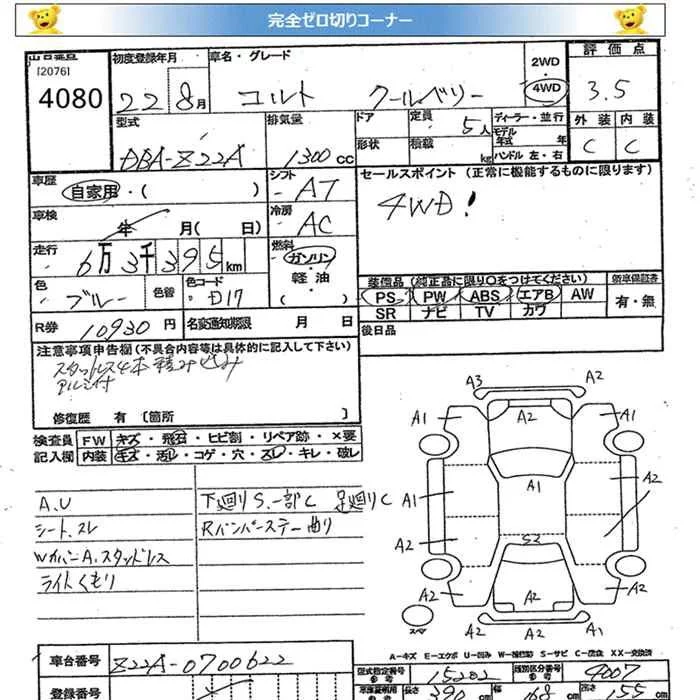 完全ゼロ切りコーナー
出品番号 初度登録年月 車名・グレード 2WD ・ 4WD 評価点
[2076]
4080 22 8月 コルト クールベリー 3.5
型式 排気量 ドア 定員 5人 ディーラー・並行 外装 内装
DBA-Z22A 1300cc 形状 積載 kg モデル年式 年 ハンドル 左・右 C C
車歴 自家用・( ) シフト AT セールスポイント (正常に機能するものに限ります)
車検 年 月( 日) 冷房 AC 4WD!
走行 6万3千395km 燃料 ガソリン・軽油 ( )
色 ブルー 色替 色コード D17 装備品 (純正品に限り○をつけてください) 新車保証書
PS PW ABS エアB AW 有・無
SR ナビ TV カワ
R券 10930円 名変通知期限 月 日 後日品
注意事項申告欄 (不具合内容等は具体的に記入して下さい)
スタットレス4本積み込み
アルミ付
修復歴 有 [箇所 ]
検査員 FW キズ・飛石・ヒビ割・リペア跡・×要
記入欄 内装 キズ・汚レ・コゲ・穴・スレ・キレ・破レ
A.U 下廻りS.一部C 足廻りC
シート.スレ Rバンパーステー曲り
WカバーA.スタッドレス
ライトくもり
A3 A2
A1 A2 A1
A1 A1 A2
A2 S2
A2 A2 A2
A2 A2
スペア
A-キズ E-エクボ U-凹み W-補修跡 S-サビ C-腐食 XX-交換済
車台番号 Z22A-0700622 型式指定番号 参考 15202 類別区分番号 参考 4007
登録番号 長さ 390cm 幅 168cm 高さ 155cm